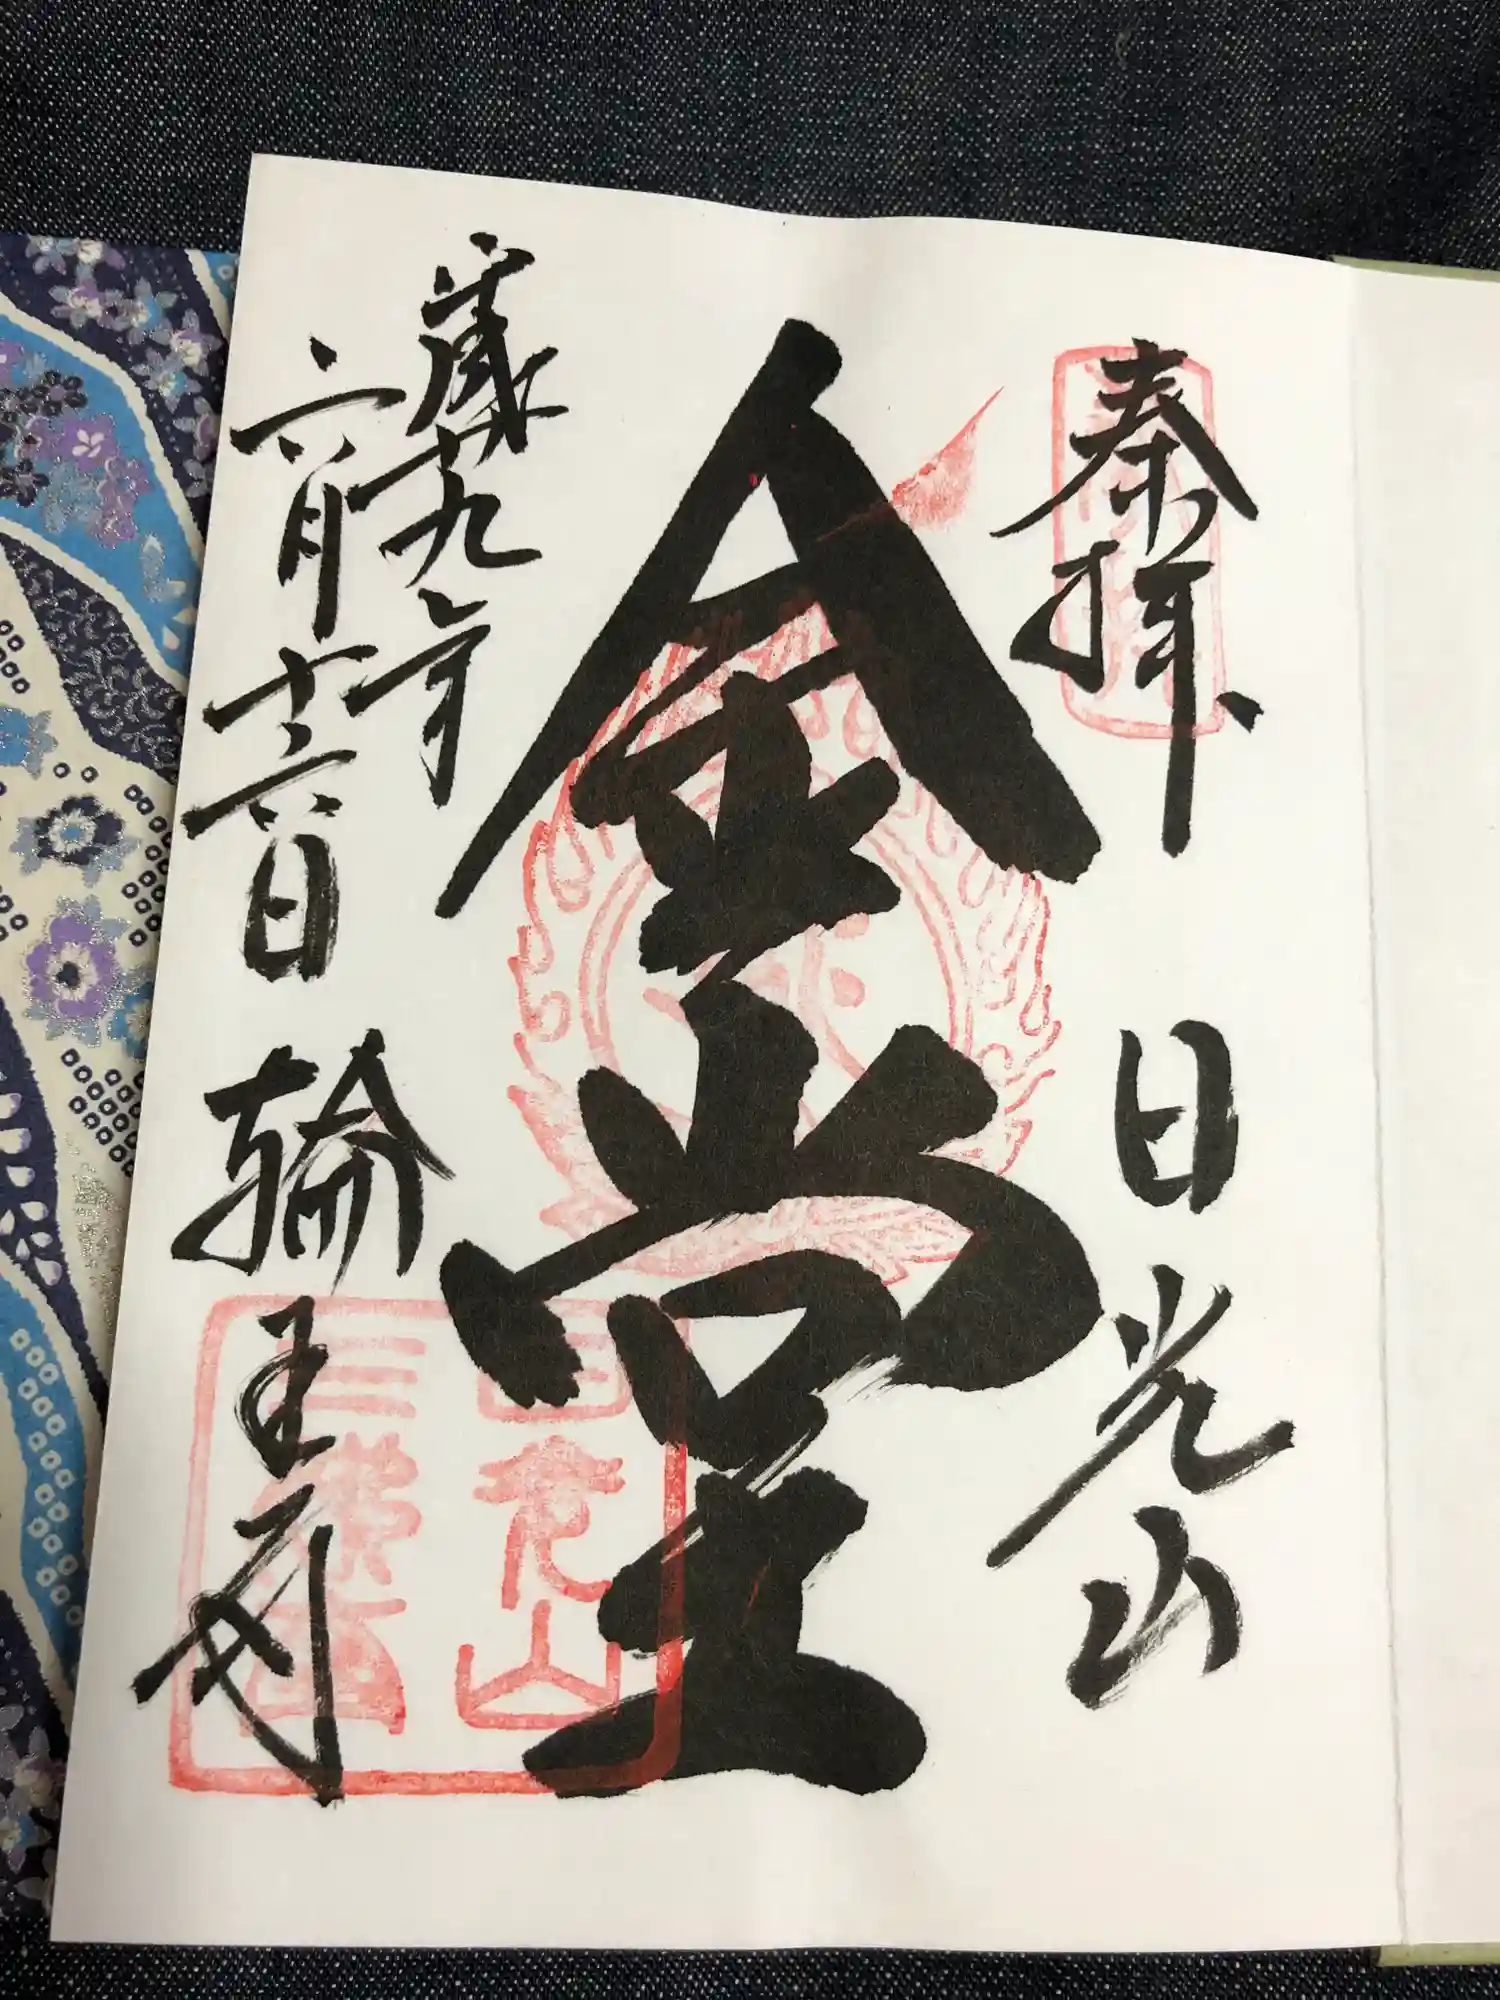 奉拝 日光山
金堂
平成廿九年
六月十六日 輪王寺
日光山
三佛堂